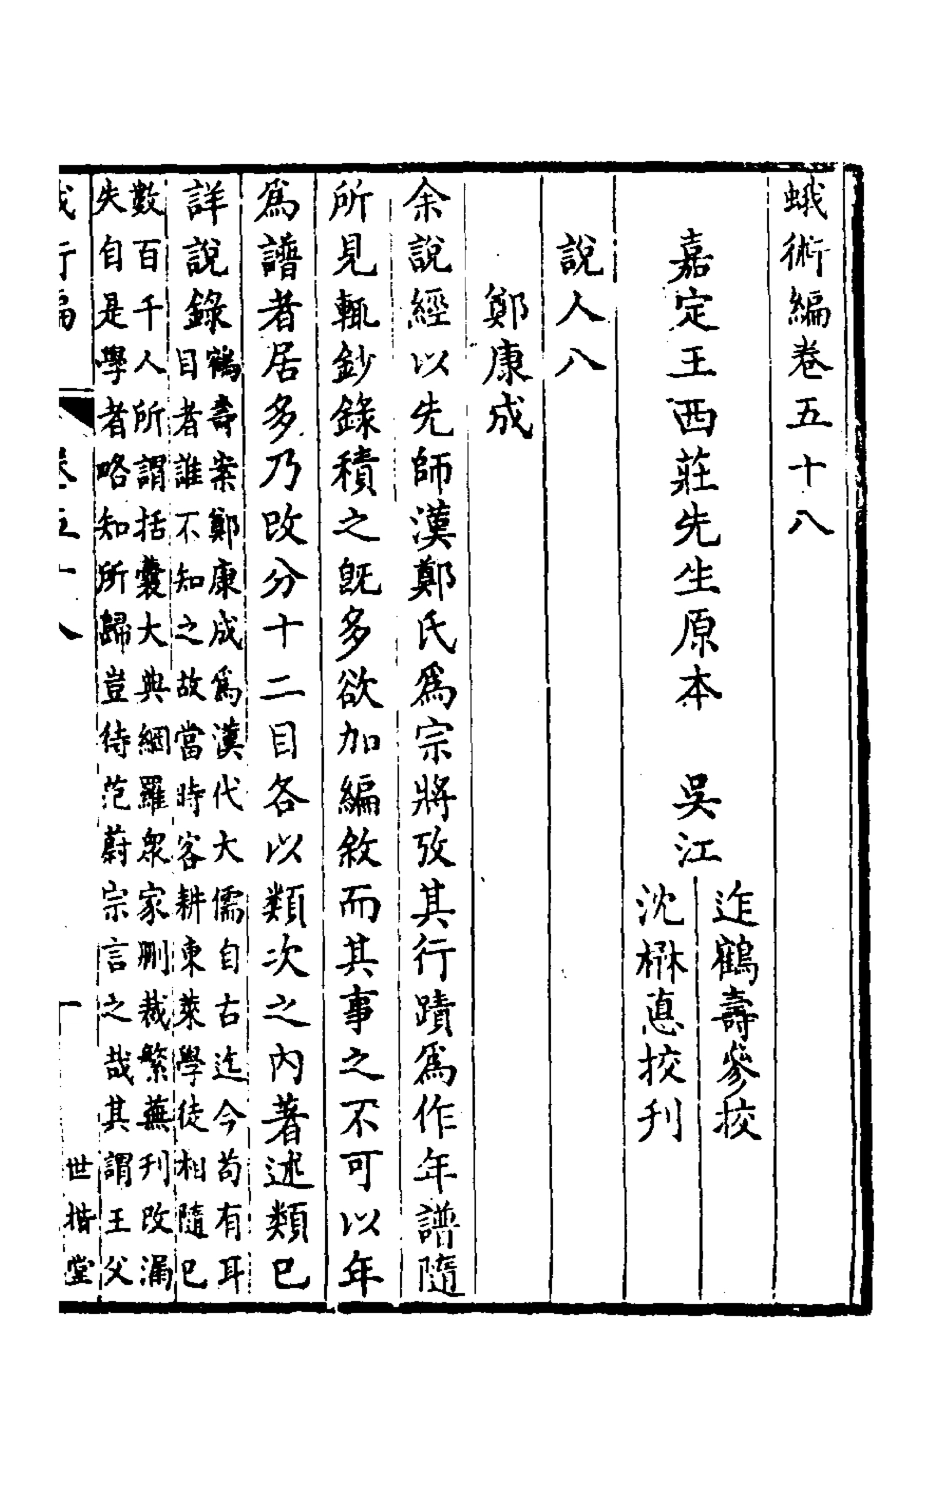 蛾術編卷五十八
嘉定王西莊先生原本　吳江
迮鶴壽參挍
沈楙悳挍刋
說人八
鄭康成
余說經以先師漢鄭氏爲宗將攷其行蹟爲作年譜隨
所見輒鈔錄積之旣多欲加編敘而其事之不可以年
爲譜者居多乃改分十二目各以類次之內著述類已
詳說錄
鶴壽案鄭康成爲漢代大儒自古迄今苟有耳
目者誰不知之故當時客耕東萊學徒相隨已
數百千人所謂括囊大典網羅衆家刪裁繁蕪刋改漏
失自是學者略知所歸豈待范蔚宗言之哉其謂王父
卷五十八
一
世楷堂